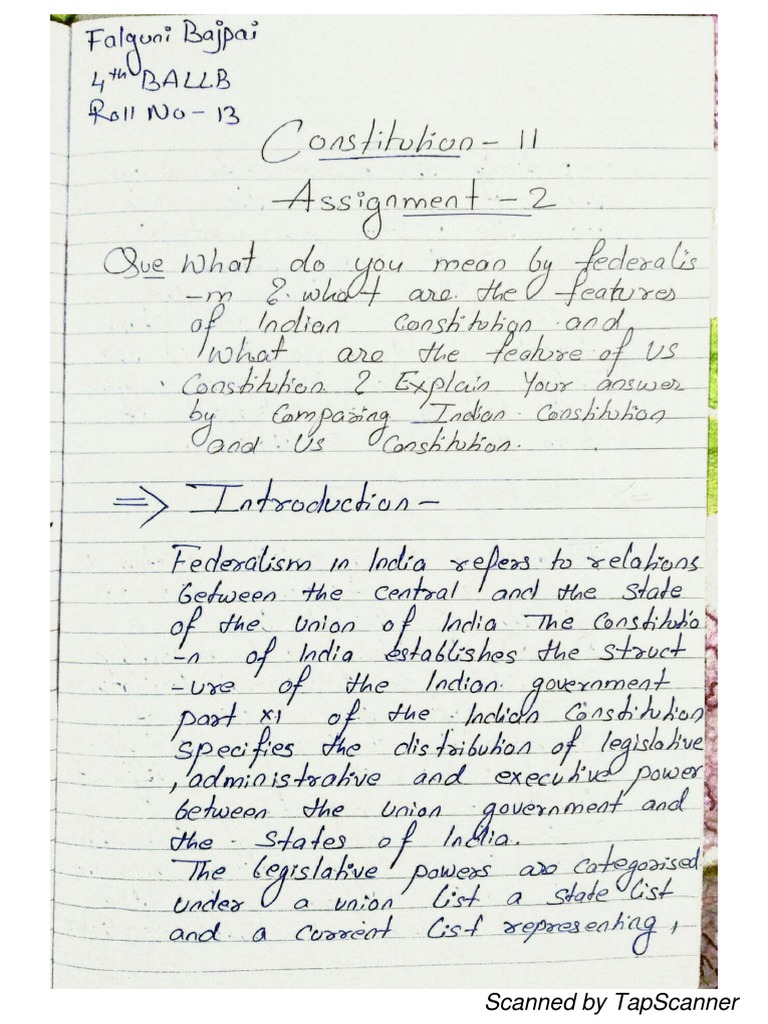 Falguni Bajpai
4th BALLB
Roll No - 13
Constitution - 11
Assignment - 2
Que What do you mean by federalis
-m ? what are the features
of Indian Constitution and
what are the feature of US
Constitution ? Explain Your answer
by Comparing Indian Constitution
and US Constitution.
⇒ Introduction -
Federalism in India refers to relations
between the central and the State
of the union of India The Constitutio
-n of India establishes the struct
-ure of the Indian government
part XI of the Indian Constitution
specifies the distribution of legislative
, administrative and executive power
between the union government and
the States of India.
The legislative powers are categorised
under a union list a State list
and a current list representing,
Scanned by TapScanner